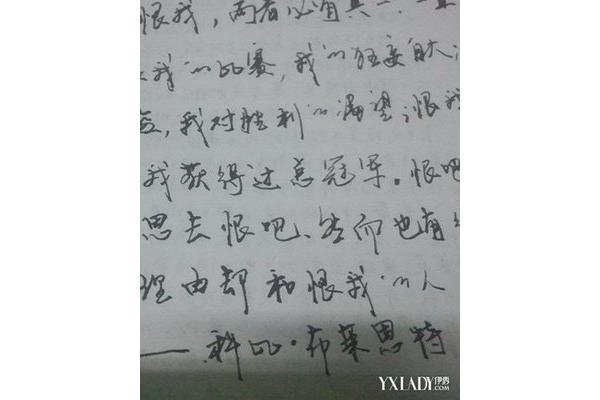 恨我，两者必有其一.一直
我的比赛，我的狂妄自大；
我对胜利的渴望；恨我
我获得过总冠军。恨吧
思去恨吧、然而也有
理由却和恨我的人
——科比·布莱恩特
YXLADY.com伊秀